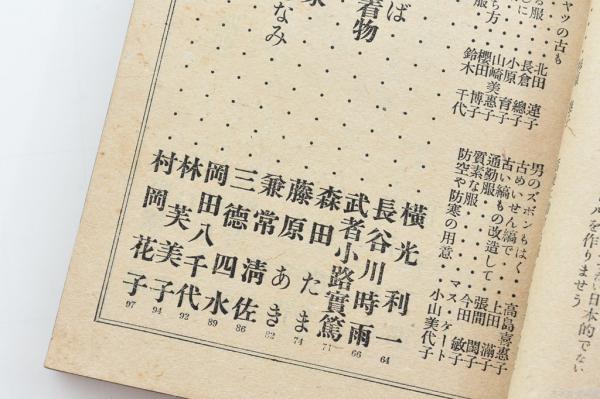 男のズボンもはく 高島喜惠子
古めいせん縞で 上田滿子
古い縞もの改造して 張間閏子
通勤服 今田敏子
質素な服 マス・ケート
防空や防寒の用意 小山美代子
ャツの古も
北田蓮子
長倉總子
小原育子
山崎美惠子
櫻田博子
鈴木千代
橫光利一 64
長谷川時雨 66
武者小路實篤 71
森田たま 74
藤原あき 82
兼常清佐 86
三德四水 89
岡田八千代 92
林芙美子 94
村岡花子 97
着物
なみ
声を作りませう
い日本的でない